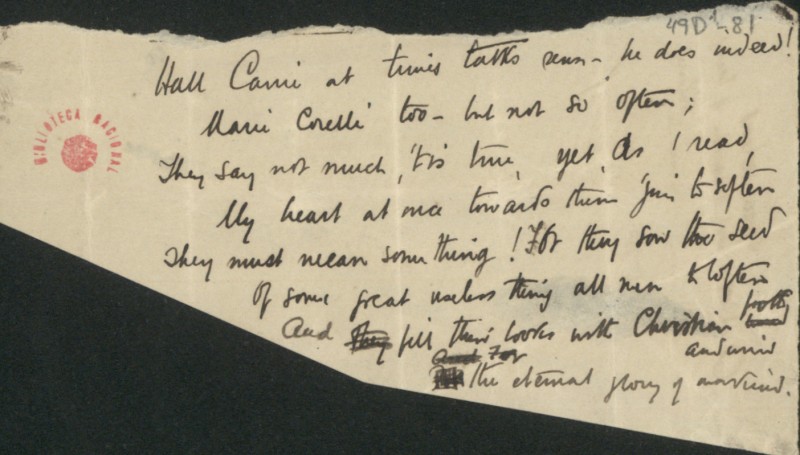 49D1-81
BIBLIOTECA NACIONAL
Hall Caine at times talks sense - he does indeed!
Marie Corelli too - but not so often;
They say not much, 'tis true, yet, as I read,
My heart at once towards them 'gins to soften
They must mean something! For they sow the seed
Of some great useless thing all men to soften
And they fill their books with Christian froth
and wind
And For
the eternal glory of mankind.